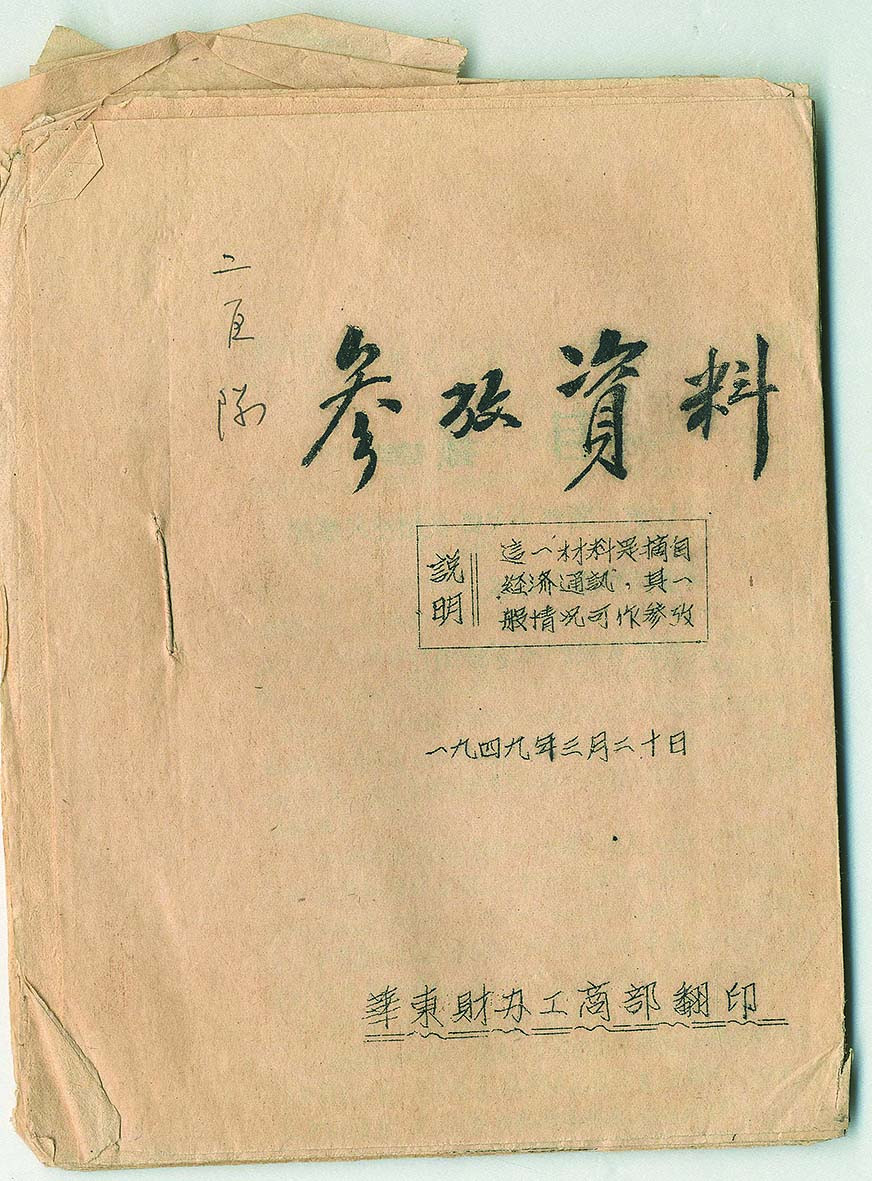 參攷資料
説明
這一材料是摘自
経济通訊，其一
般情况可作參攷
一九四九年三月二十日
華東財办工商部翻印